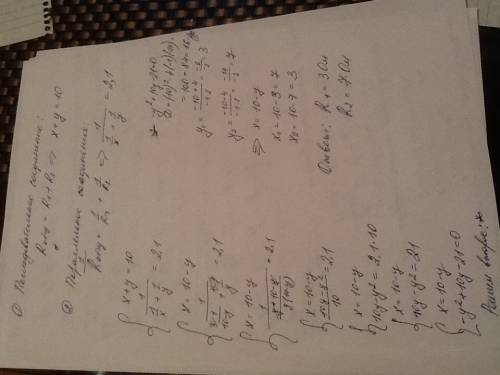 ① Последовательное соединение:
Rобщ = R₁ + R₂ ⇒ x + y = 10
② Параллельное соединение:
Rобщ = 1/R₁ + 1/R₂ ⇒ 1/(1/x + 1/y) = 2,1
{ x + y = 10
1/(1/x + 1/y) = 2,1
{ x = 10 - y
= 2,1
{ x = 10 - y
= 2,1
{ x = 10 - y
(10y - y²)/10 = 2,1
{ x = 10 - y
10y - y² = 2,1·10
{ x = 10 - y
10y - y² = 21
{ x = 10 - y
-y² + 10y - 21 = 0
Решим второе: *
* -y² + 10y - 21 = 0
= 100 - 84 = 16
y₁ = (-10 + 4)/-2 = -6/-2 = 3
y₂ = (-10 - 4)/-2 = -14/-2 = 7
⇒ x = 10 - y
x₁ = 10 - 3 = 7
x₂ = 10 - 7 = 3
Ответ: R₁ = 3 Ом
R₂ = 7 Ом